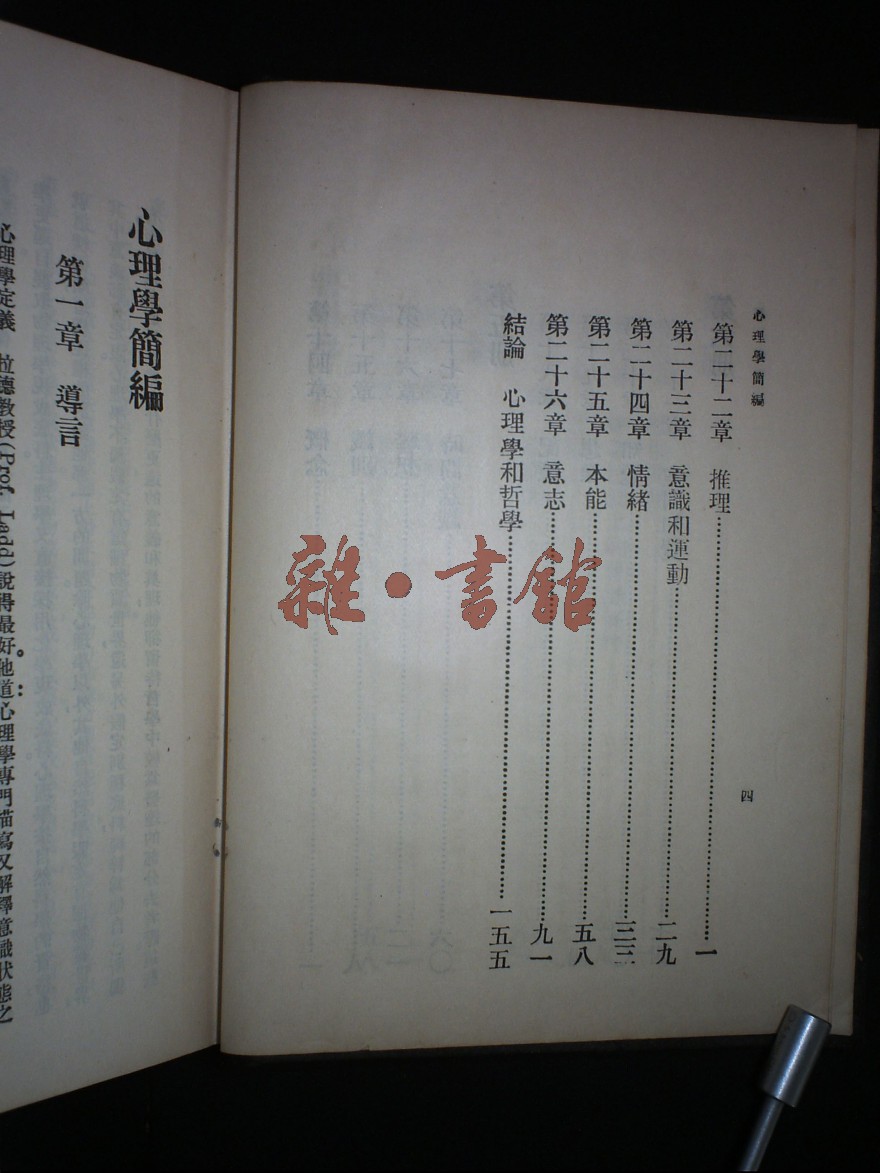 心理學簡編
第二十二章 推理 一
第二十三章 意識和運動 二九
第二十四章 情緒 三三
第二十五章 本能 五八
第二十六章 意志 九一
結論 心理學和哲學 一五五
四
雜·書館
心理學簡編
第一章 導言
心理學定義 拉德教授(Prof. Ladd)說得最好。他道：心理學專門描寫又解釋意識狀態之